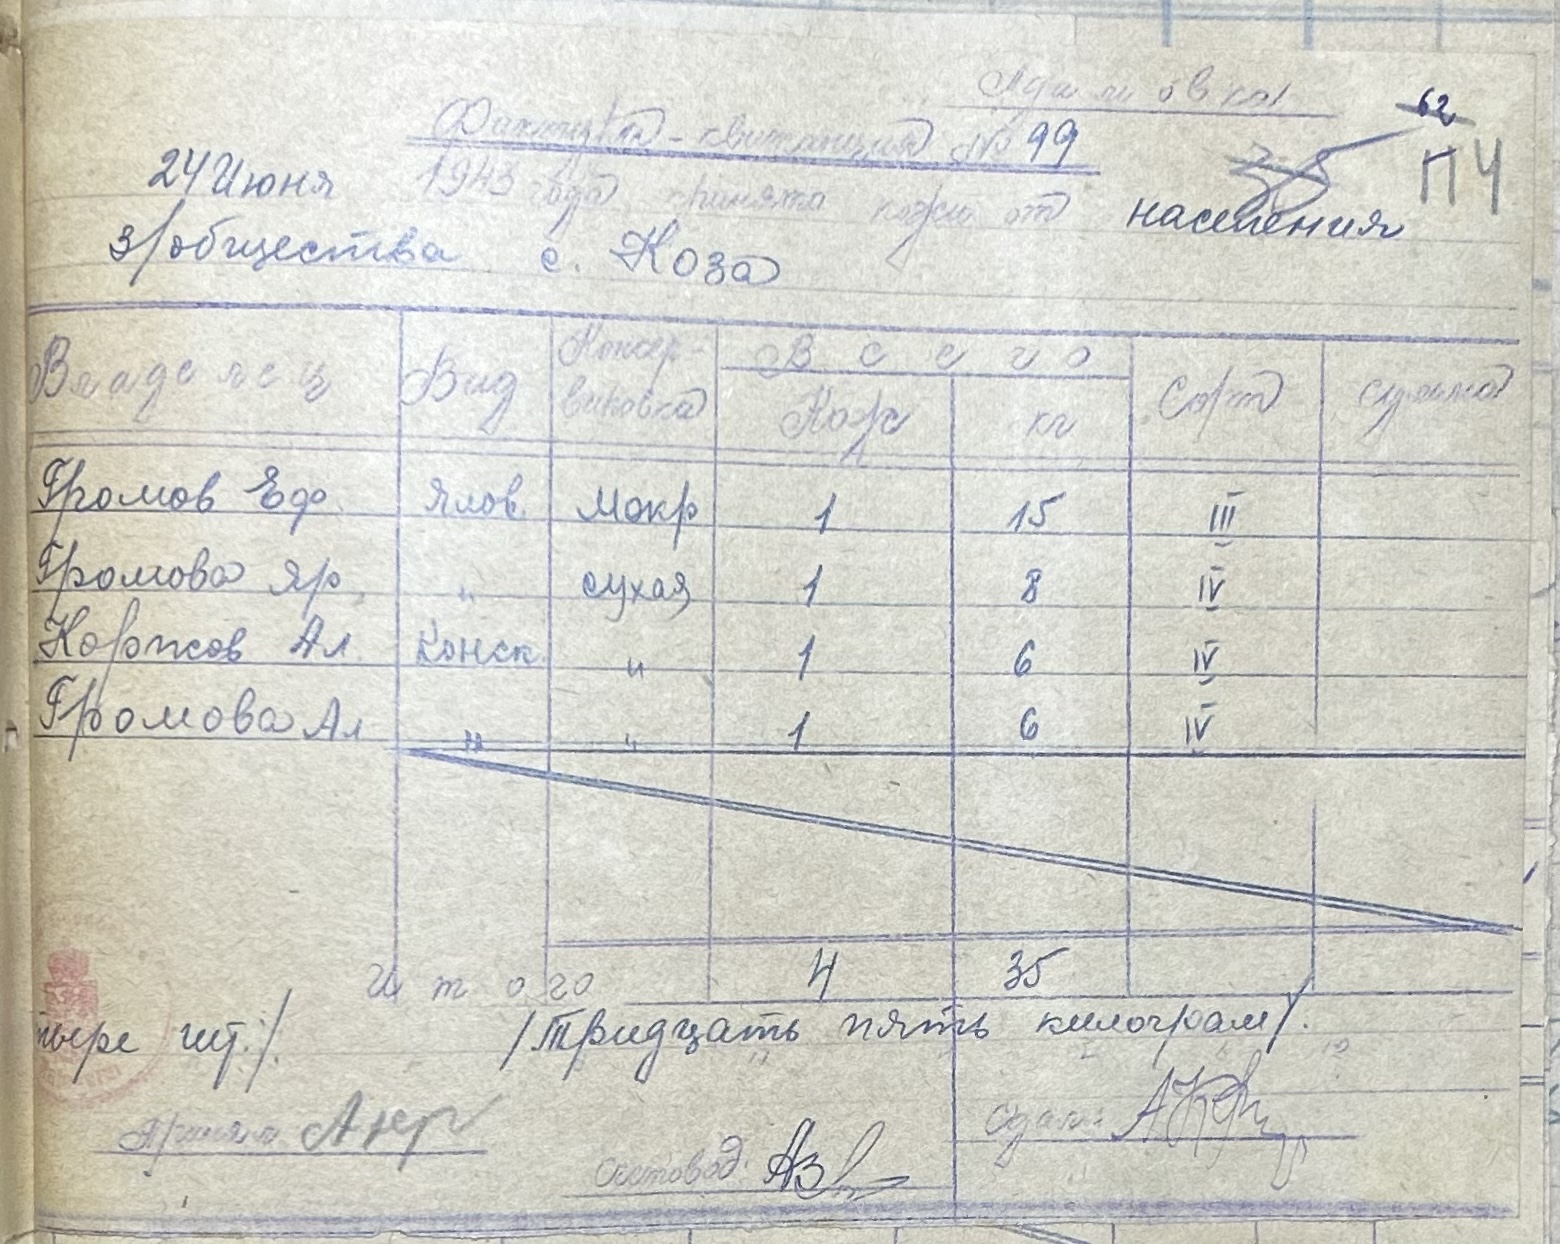 62
ПЧ
Фактура-квитанция № 99
24 Июня 1943 года принята кожи от населения
з/общества с. Коза
Владелец Вид Консер- Всего Сорт сумма
вировка Кож кг
Громов Еф. Ялов. Мокр 1 15 III
Громова Яр. " сухая 1 8 IV
Коржов Ал. Конск. " 1 6 IV
Громова Ал " " 1 6 IV
Итого 4 35
тыре шт./. /Тридцать пять килограм/.
Принял Сдал:
Счетовод: